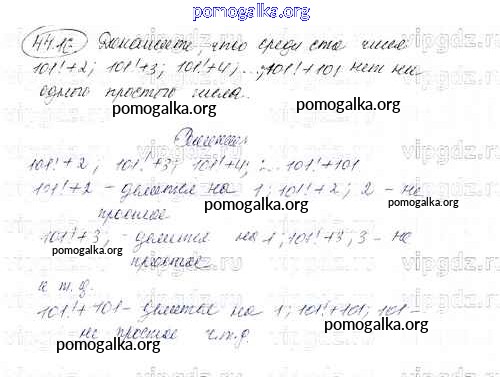 pomogalka.org
44.12 Докажите, что среди ста чисел
101!+2; 101!+3; 101!+4; ...; 101!+101 нет ни
одного простого числа.
pomogalka.org
pomogalka.org
Решение:
101!+2; 101!+3; 101!+4; ... 101!+101
101!+2 – делится на 1; 101!+2; 2 – не
простое
pomogalka.org
pomogalka.org
pomogalka.org
101!+3, – делится на 1; 101!+3; 3 – не
простое
и т.д.
101!+101 – делится на 1; 101!+101; 101 –
не простое ч.т.д.
pomogalka.org
pomogalka.org